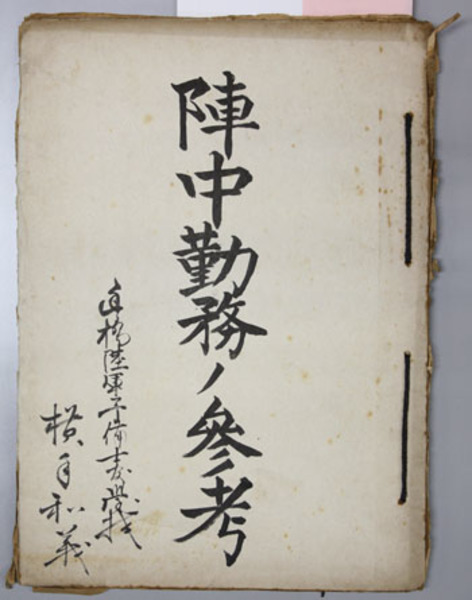 陣中勤務ノ參考
豊橋陸軍予備士官学校
横手和義